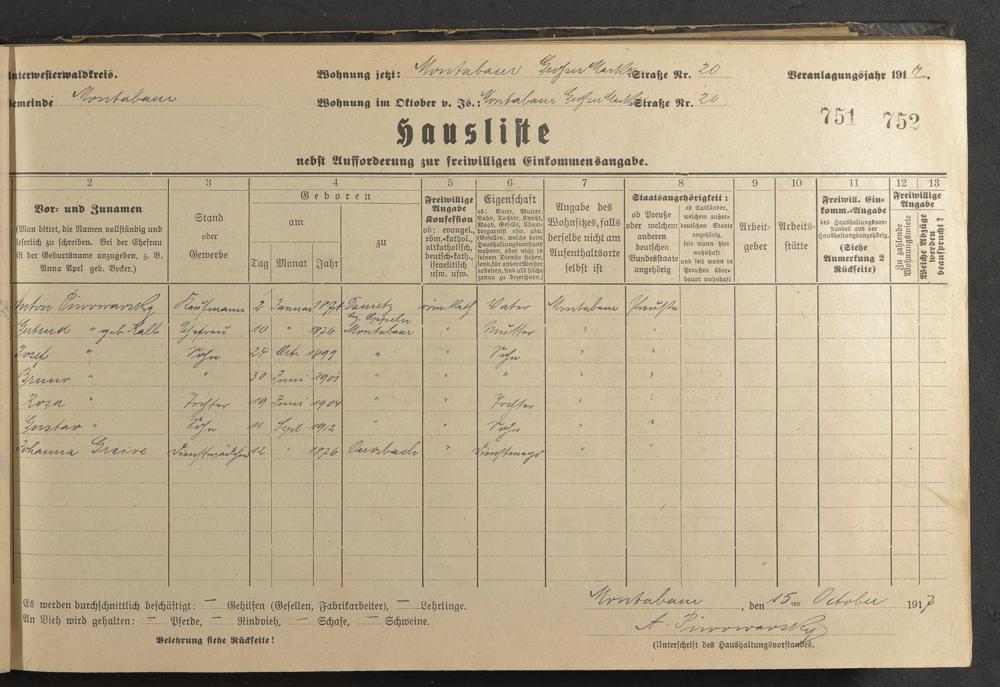 Unterwesterwaldkreis. Wohnung jetzt: Montabaur Großer Markt Straße Nr. 20 Veranlagungsjahr 191
Gemeinde Montabaur Wohnung im Oktober v. Js.: Montabaur Großer Markt Straße Nr. 20
751 752
Hausliste
nebst Aufforderung zur freiwilligen Einkommensangabe.
2 3 4 5 6 7 8 9 10 11 12 13
Vor- und Zunamen
(Man bittet, die Namen vollständig und
leserlich zu schreiben. Bei der Ehefrau
ist der Geburtsname anzugeben, z. B.
Anna Apel geb. Becker.)
Stand
oder
Gewerbe
Geboren
am zu
Tag Monat Jahr
Freiwillige
Angabe
Konfession
ob: evangel.,
röm.-kathol.,
altkatholisch,
deutsch-kath.,
israelitisch
usw. usw.
Eigenschaft
ob: Vater, Mutter,
Sohn, Tochter, Knecht,
Magd, Geselle, Cham-
bregarnist usw. usw.
(Gesellen, welche beim
Haushaltungsvorstand
wohnen, aber nicht in
seinem Dienste stehen,
sond. für andere Meister
arbeiten, sind als solche
genau zu bezeichnen.)
Angabe des
Wohnsitzes, falls
derselbe nicht am
Aufenthaltsorte
selbst ist
Staatsangehörigkeit:
ob Preuße
oder welchem
anderen
deutschen
Bundesstaate
angehörig
ob Ausländer,
welchem außer-
deutschen Staate
angehörig,
seit wann hier
wohnhaft
und seit wann in
Preußen über-
haupt wohnhaft
Arbeit-
geber
Arbeits-
stätte
Freiwill. Ein-
komm.-Angabe
des Haushaltungsvor-
standes und der
Haushaltungsangehörig.
(Siehe
Anmerkung 2
Rückseite)
Freiwillige
Angabe
Zu zahlende
Wohnungsmiete
Welche Abzüge
werden
beansprucht?
Anton Piwowarsky Kaufmann 2 Januar 1871 röm. Kath Vater Montabaur Preuße
Gertrud " geb. Kalb Ehefrau 10 " 1876 Montabaur " Mutter " "
Josef " Sohn 24 Okt. 1899 " " Sohn " "
Bruno " " 30 Juni 1901 " " " " "
Rosa " Tochter 19 Juni 1904 " " Tochter " "
Gustav " Sohn 11 Sept 1912 " " Sohn " "
Johanna Greive Dienstmädchen 12 " 1876 " Dienstmagd " "
Es werden durchschnittlich beschäftigt: — Gehilfen (Gesellen, Fabrikarbeiter), — Lehrlinge.
An Vieh wird gehalten: — Pferde, — Rindvieh, — Schafe, — Schweine.
Belehrung siehe Rückseite!
Montabaur, den 15ten October 1917
A. Piwowarsky
(Unterschrift des Haushaltungsvorstandes.